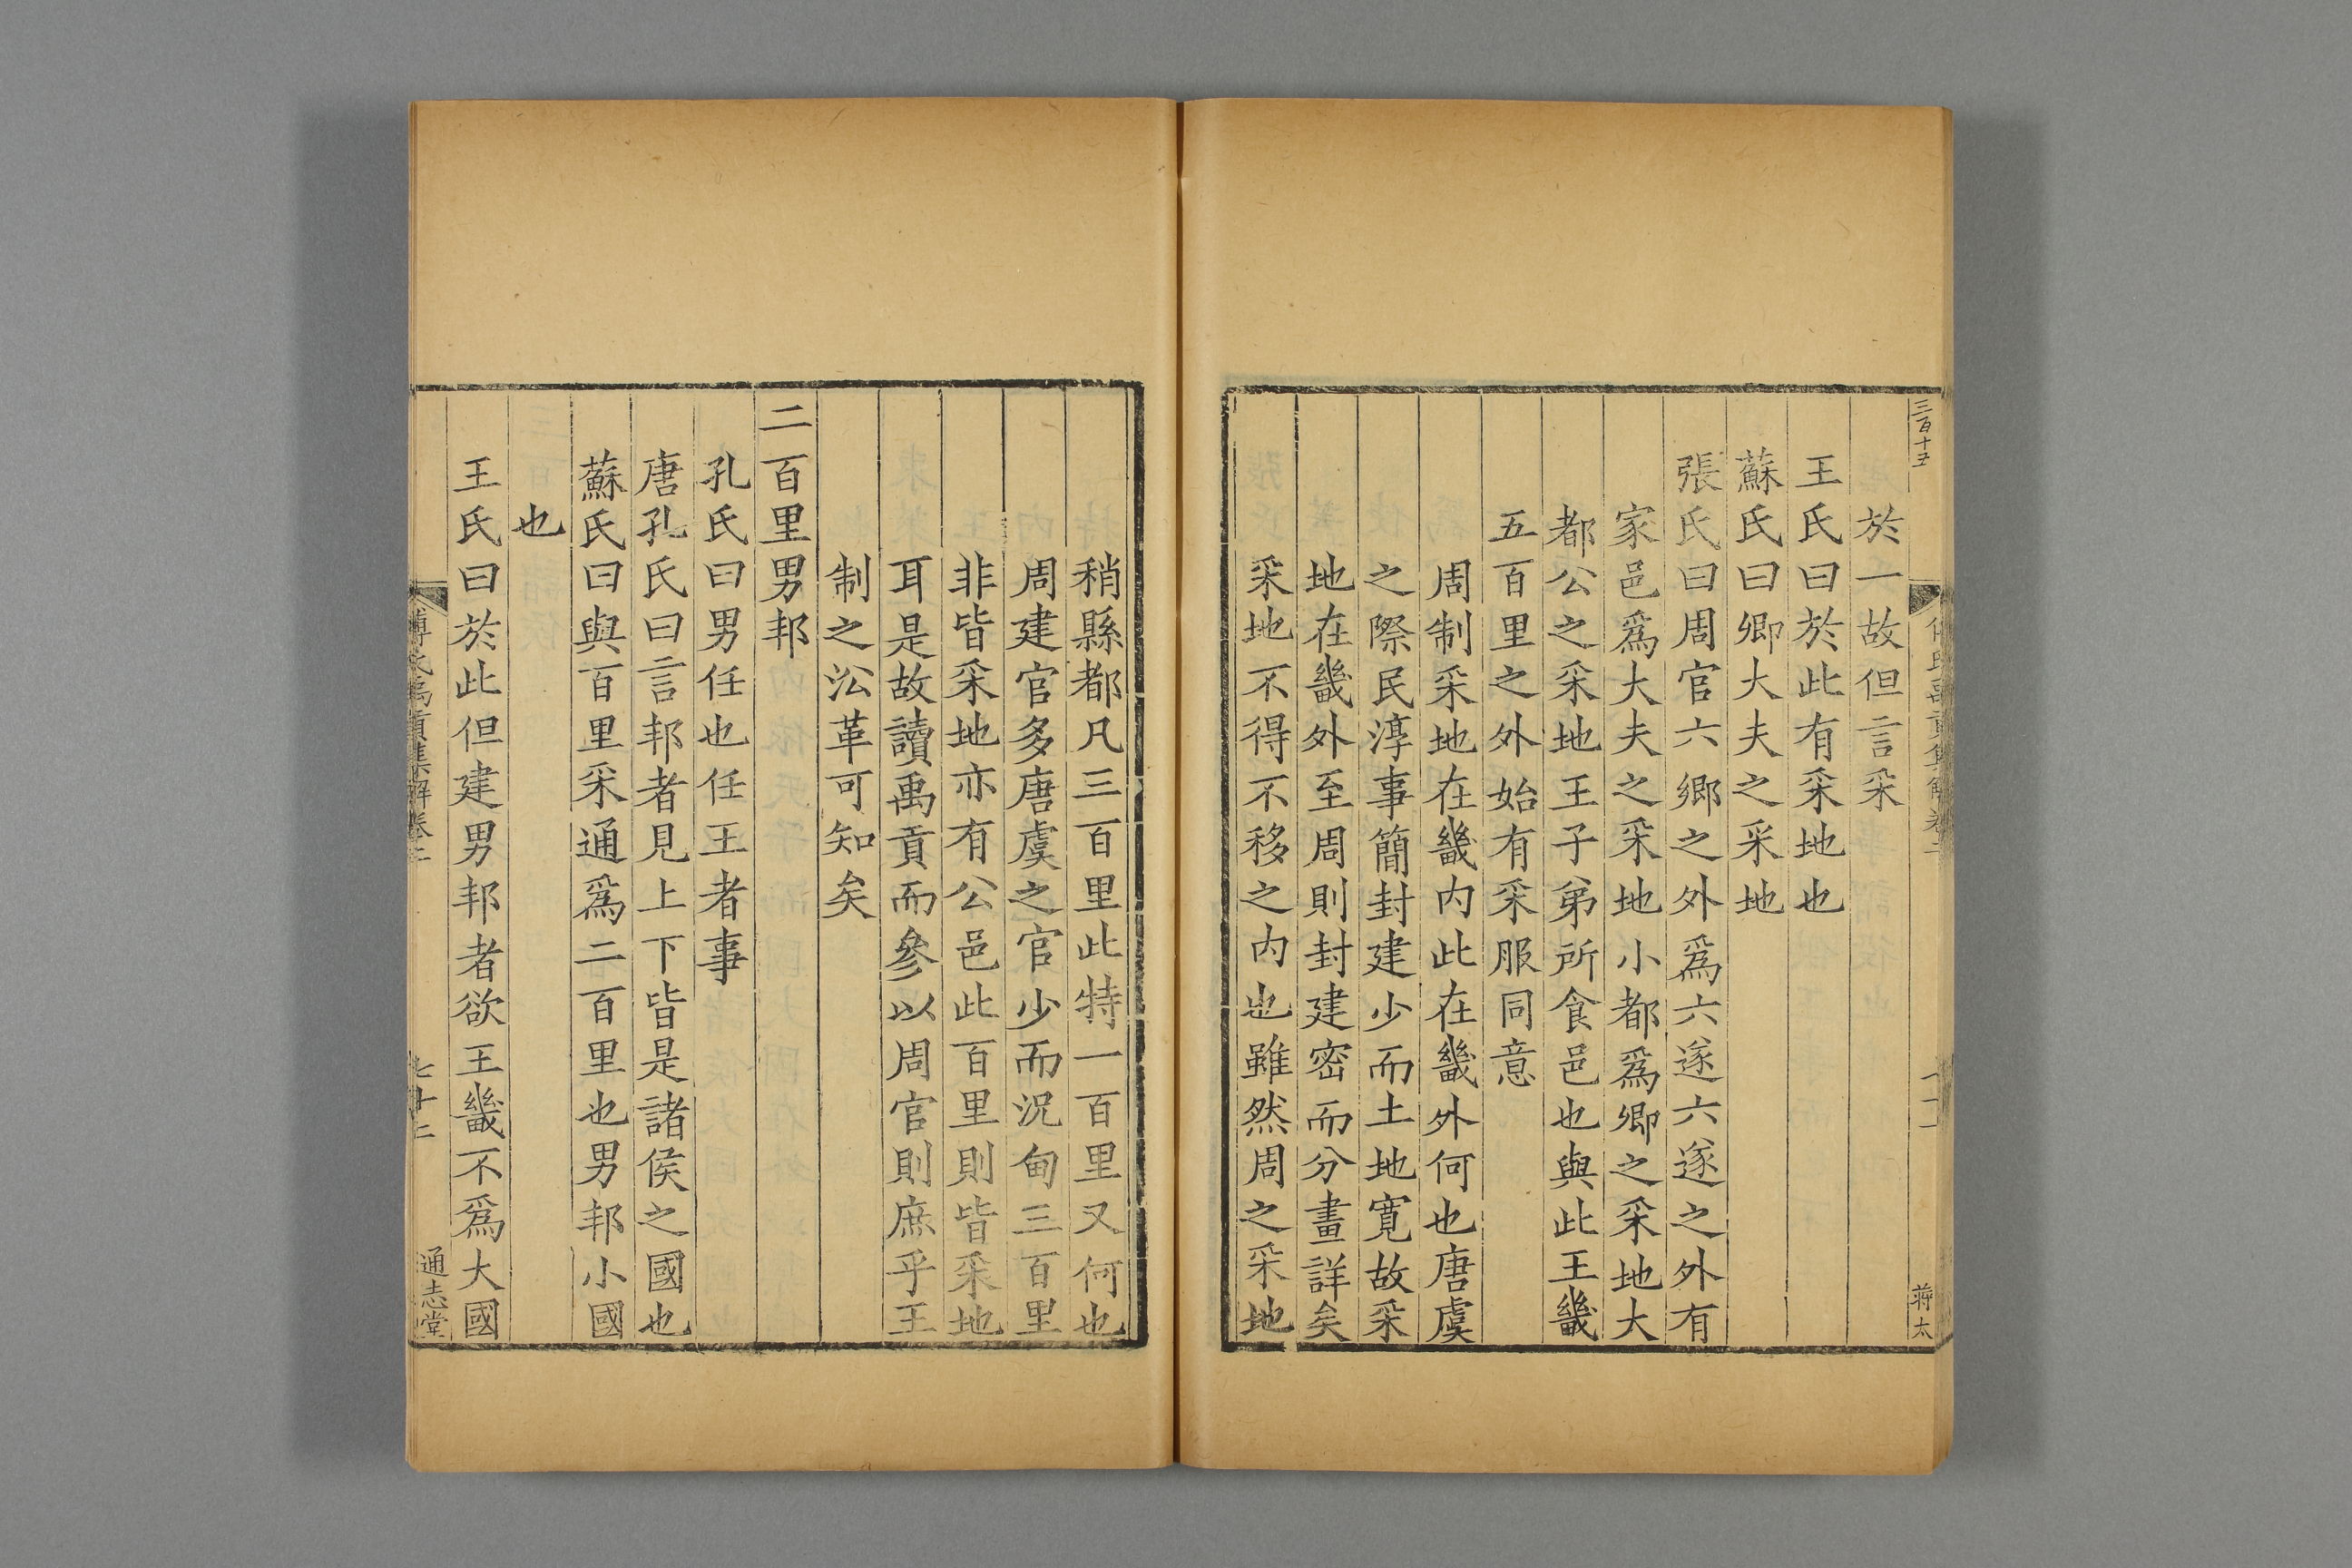 三百十五
於一故但言采
王氏曰於此有采地也
蘇氏曰卿大夫之采地
張氏曰周官六鄉之外爲六遂六遂之外有
家邑爲大夫之采地小都爲卿之采地大
都公之采地王子弟所食邑也與此王畿
五百里之外始有采服同意
周制采地在畿内此在畿外何也唐虞
之際民淳事簡封建少而土地寛故采
地在畿外至周則封建密而分畫詳矣
采地不得不移之内也雖然周之采地
蔣太
稍縣都凡三百里此特一百里又何也
周建官多唐虞之官少而況甸三百里
非皆采地亦有公邑此百里則皆采地
耳是故讀禹貢而參以周官則庶乎王
制之㳂革可知矣
二百里男邦
孔氏曰男任也任王者事
唐孔氏曰言邦者見上下皆是諸侯之國也
蘇氏曰與百里采通爲二百里也男邦小國
也
王氏曰於此但建男邦者欲王畿不爲大國
傅氏禹貢集解卷二
七十二
通志堂